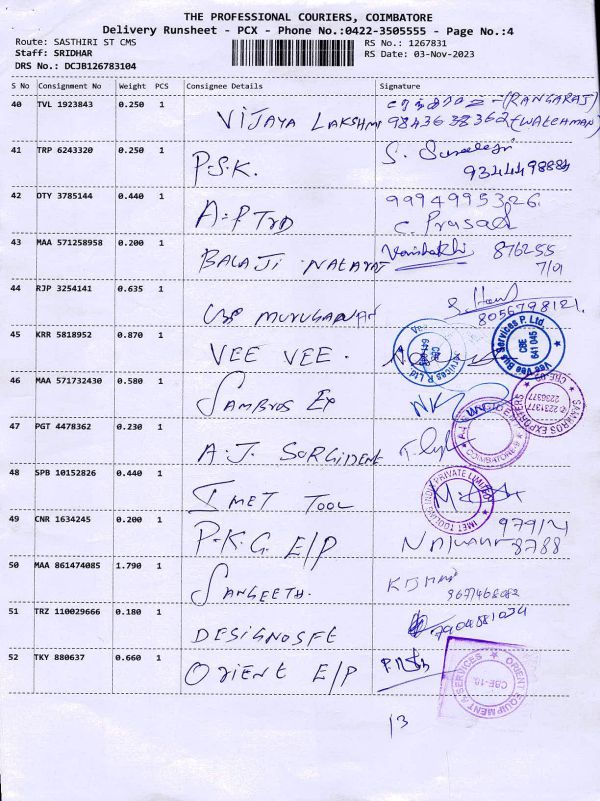 THE PROFESSIONAL COURIERS, COIMBATORE
Delivery Runsheet - PCX - Phone No.:0422-3505555 - Page No.:4
Route: SASTHIRI ST CMS
RS No.: 1267831
Staff: SRIDHAR
RS Date: 03-Nov-2023
DRS No.: DCJB126783104
S No Consignment No Weight PCS Consignee Details Signature
40 TVL 1923843 0.250 1 VIJAYA LAKSHMI (RANGARAJ)
9843638362 (WATCHMAN)
41 TRP 6243320 0.250 1 P.S.K. S.
9344498884
42 DTY 3785144 0.440 1 A.P TRD 9994995326.
C. Prasad
43 MAA 571258958 0.200 1 BALAJI NATARAJ Vaishakhi 876255
7/9
44 RJP 3254141 0.635 1 MURUGANAN
8056798121.
45 KRR 5818952 0.870 1 VEE VEE.
Vee Vee Bus Services P. Ltd.
CBE
641 045
46 MAA 571732430 0.580 1 SAMBROS EX
SAMBROS EXPORTERS
2231377
2236377
47 PGT 4478362 0.230 1 A.J.
COIMBATORE
48 SPB 10152826 0.440 1 IMET TOOL
IMET TOOLING INDIA PRIVATE LIMITED
49 CNR 1634245 0.200 1 P.K.G E/P 979121
8788
50 MAA 861474085 1.790 1 SANGEETH.
9677468082
51 TRZ 110029666 0.180 1 DESIGNOSFE 7904881034
52 TKY 880637 0.660 1 ORIENT E/P
ORIENT EQUIPMENT & SERVICES
CBE-18.
13